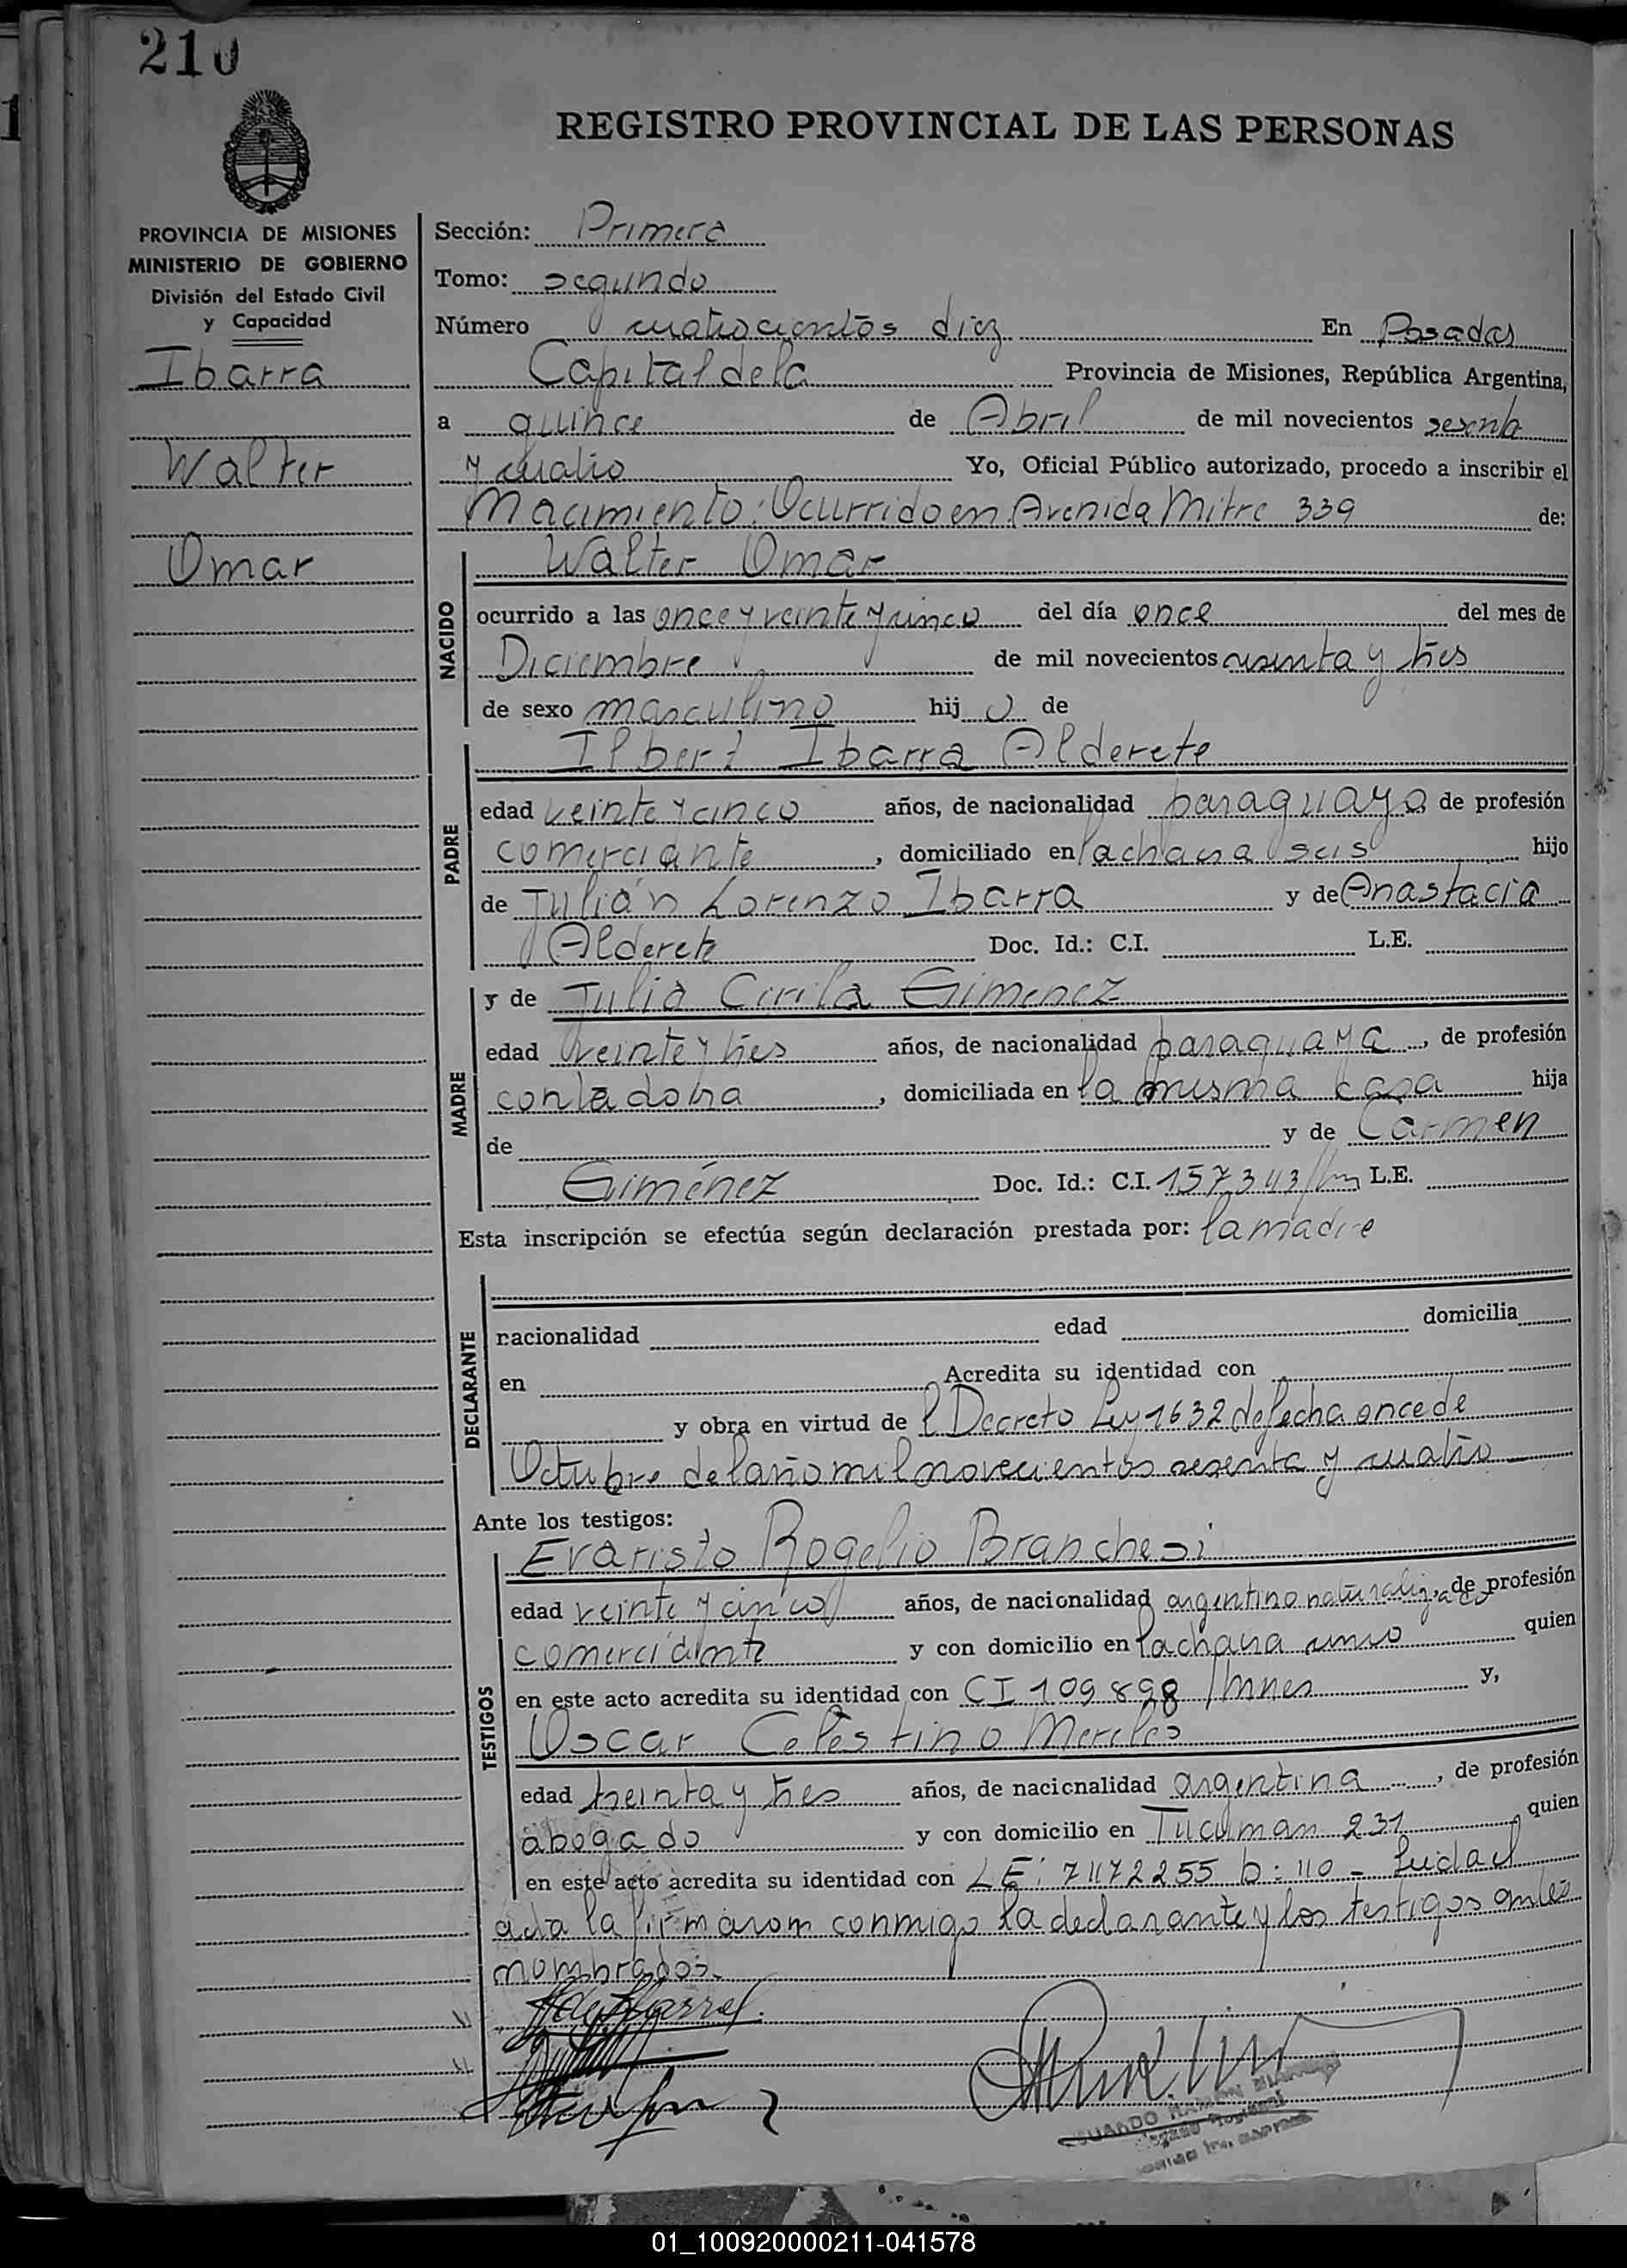 210
REGISTRO PROVINCIAL DE LAS PERSONAS
PROVINCIA DE MISIONES
MINISTERIO DE GOBIERNO
División del Estado Civil
y Capacidad
Ibarra
Walter
Omar
Sección: Primera
Tomo: segundo
Número cuatrocientos diez En Posadas
Capital de la Provincia de Misiones, República Argentina,
a quince de Abril de mil novecientos sesenta
y cuatro Yo, Oficial Público autorizado, procedo a inscribir el
Nacimiento: Ocurrido en Avenida Mitre 339 de:
NACIDO
Walter Omar
ocurrido a las once y veinte y cinco del día once del mes de
Diciembre de mil novecientos sesenta y tres
de sexo masculino hij o de
PADRE
Ilbert Ibarra Alderete
edad veinte y cinco años, de nacionalidad paraguaya de profesión
comerciante, domiciliado en la chacra seis hijo
de Julián Lorenzo Ibarra y de Anastacia
Alderete Doc. Id.: C.I. L.E.
MADRE
y de Julia Cirila Gimenez
edad veinte y tres años, de nacionalidad paraguaya, de profesión
contadora, domiciliada en la misma casa hija
de y de Carmen
Giménez Doc. Id.: C.I. 157343 L.E.
Esta inscripción se efectúa según declaración prestada por: la madre
DECLARANTE
nacionalidad edad domicilia
en Acredita su identidad con
y obra en virtud de l Decreto Ley 1632 de fecha once de
Octubre del año mil novecientos sesenta y cuatro
Ante los testigos:
TESTIGOS
Evaristo Rogelio Branchesi
edad veinte y cinco años, de nacionalidad argentino naturalizado, de profesión
comerciante y con domicilio en la chacra quien
en este acto acredita su identidad con CI 109898 /Mnes y,
Oscar Celestino Mereles
edad treinta y tres años, de nacionalidad argentina, de profesión
abogado y con domicilio en Tucuman 231 quien
en este acto acredita su identidad con LE: 7472255 D: 110 - Leida el
acta la firmaron conmigo la declarante y los testigos antes
nombrados.
01_100920000211-041578